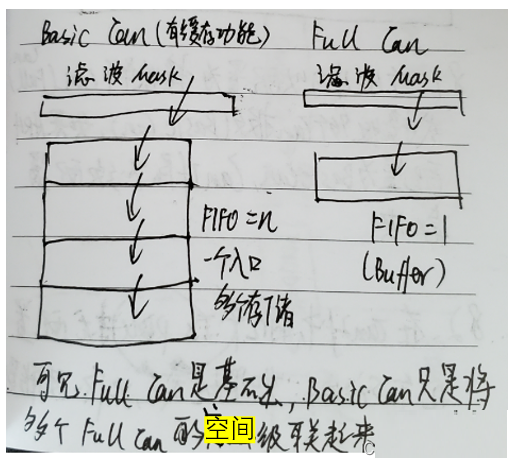 Basic Can (有缓存功能)
Full Can
滤波 Mask
滤波 Mask
FIFO=n
一个入口
多个存储
FIFO=1
(Buffer)
可见 Full Can是基础, Basic Can只是将
多个 Full Can 的空间级联起来